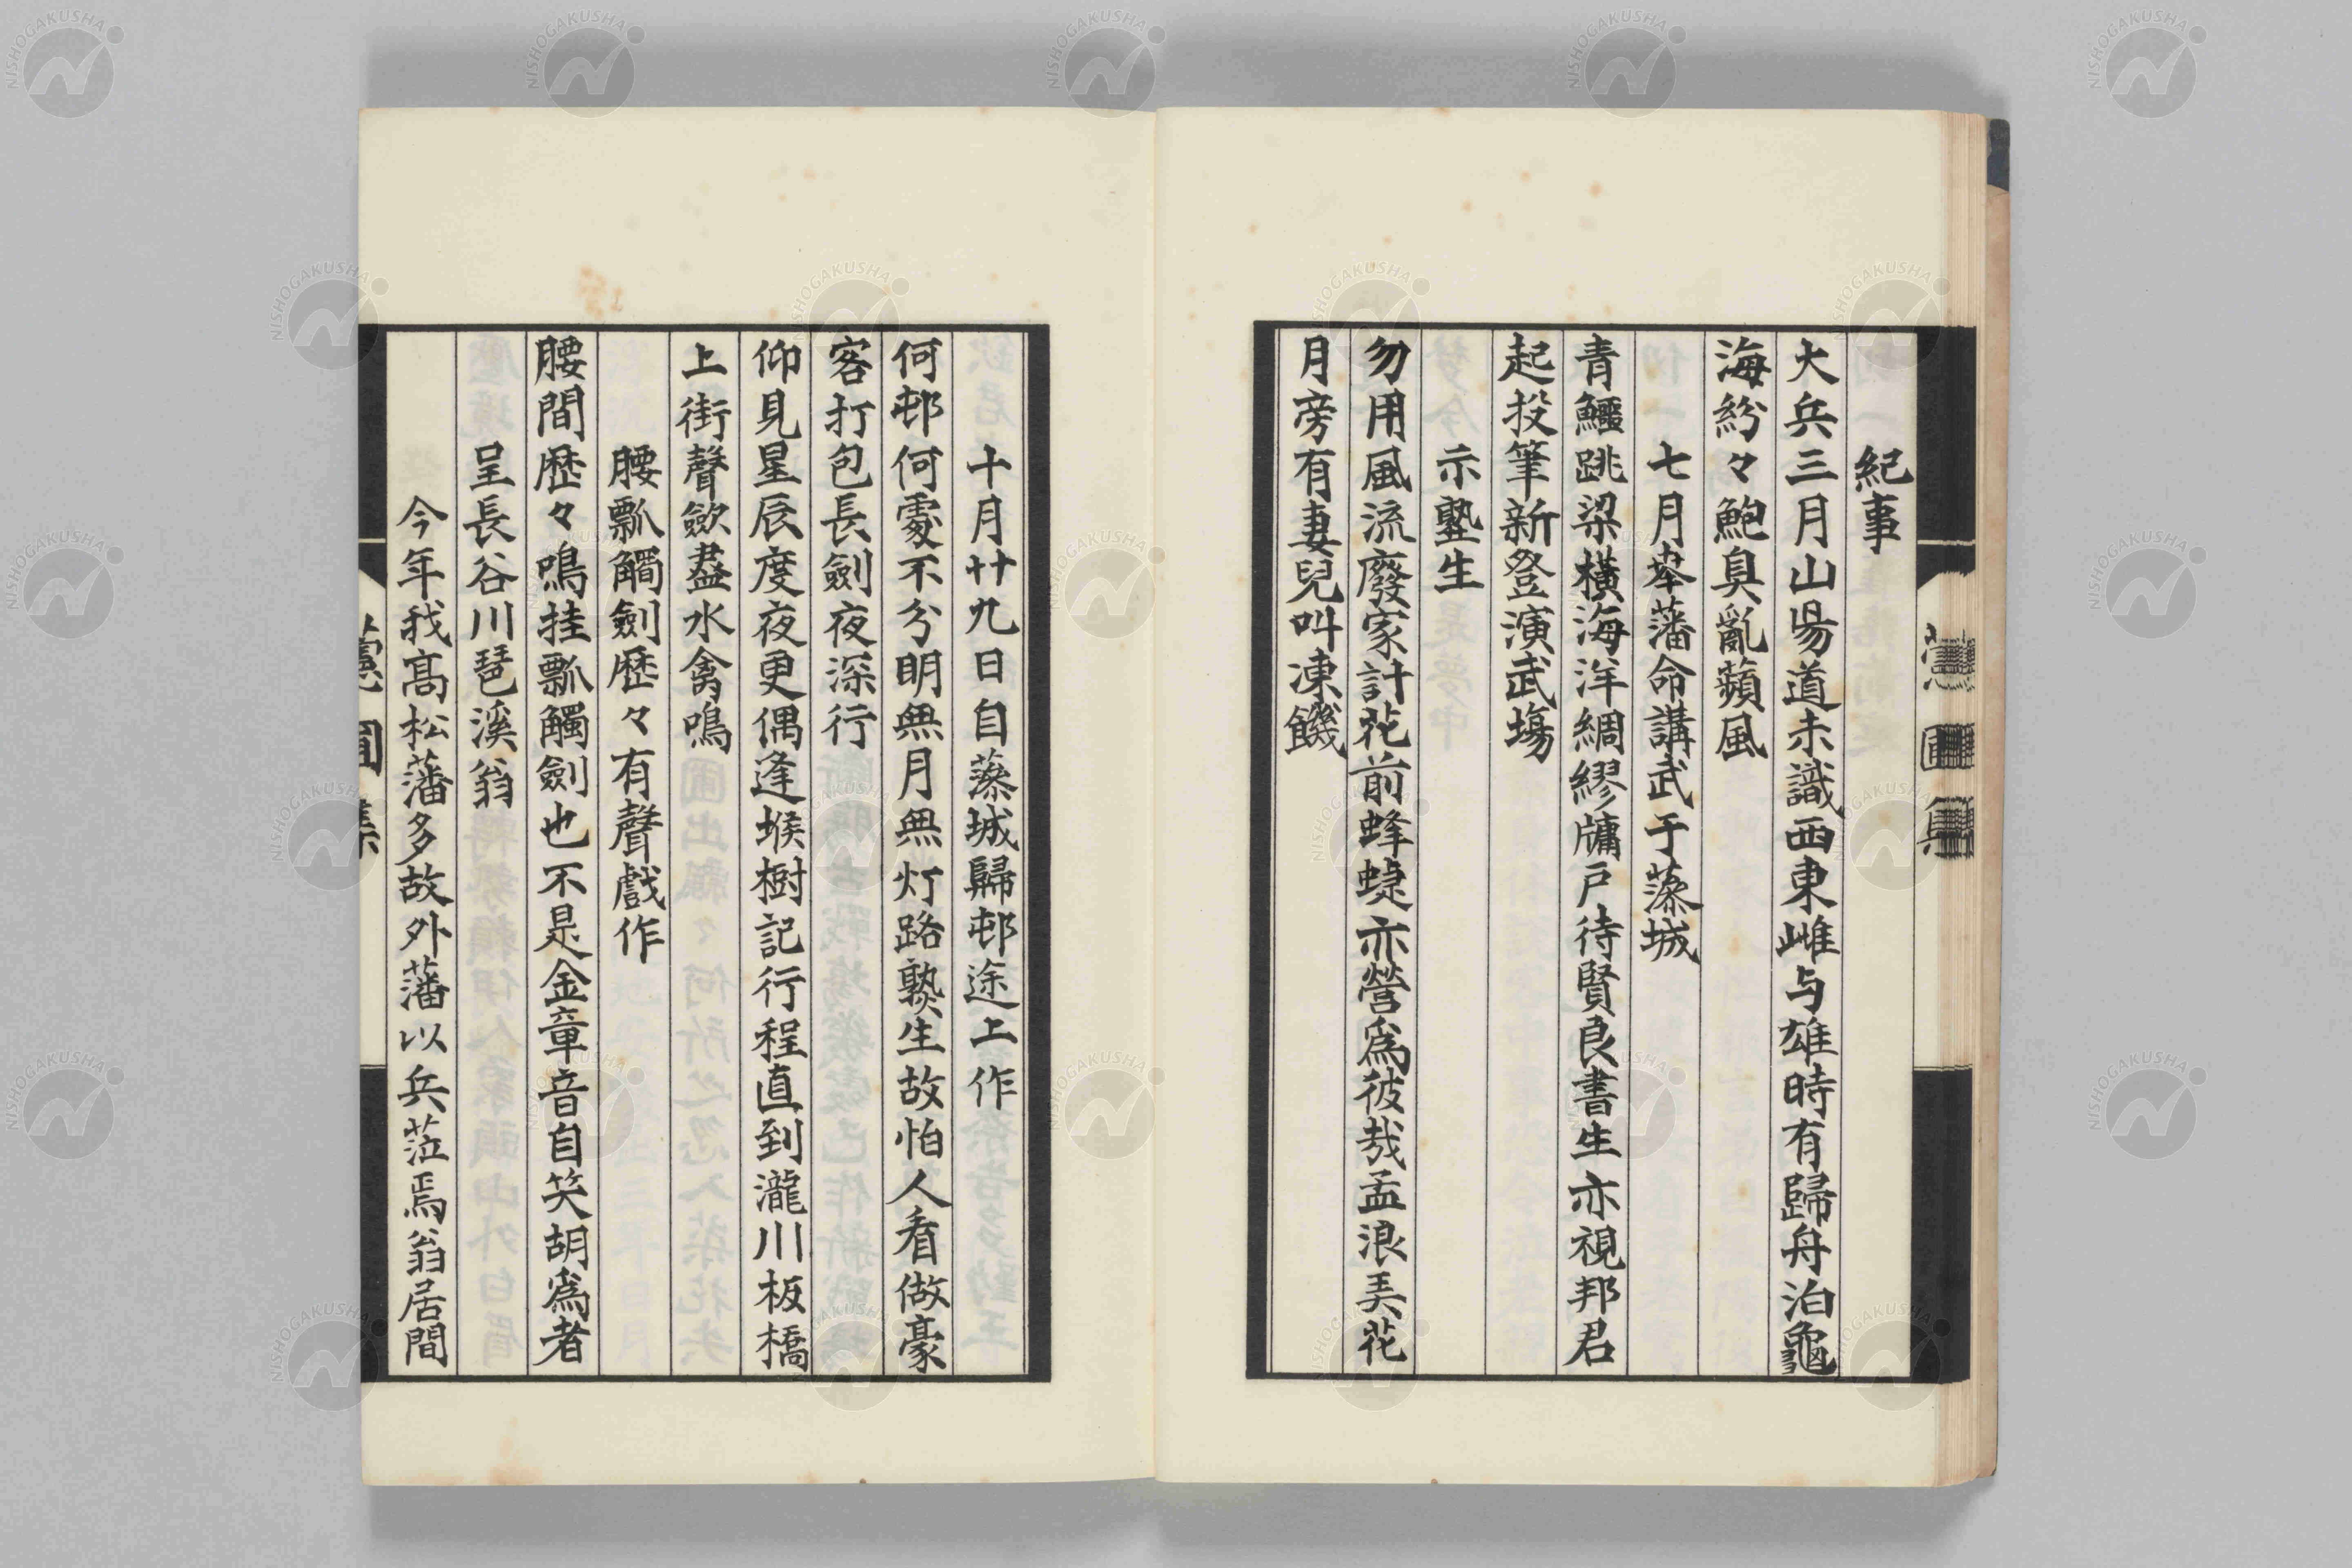 紀事
大兵三月山陽道未識西東雌与雄時有歸舟泊龜
海紛々鮑臭亂蘋風
七月奉藩命講武于藻城
青鱷跳梁橫海洋綢繆牖戸待賢良書生亦視邦君
起投筆新登演武場
示塾生
勿用風流廢家計花前蜂蜨亦營為彼哉孟浪弄花
月旁有妻兒叫凍饑
十月廿九日自藻城歸邨途上作
何邨何處不分明無月無灯路熟生故怕人看做豪
客打包長劍夜深行
仰見星辰度夜更偶逢堠樹記行程直到瀧川板橋
上街聲歛盡水禽鳴
腰瓢觸劍歴々有聲戲作
腰間歴々鳴挂瓢觸劍也不是金章音自笑胡爲者
呈長谷川琶溪翁
今年我髙松藩多故外藩以兵蒞焉翁居間